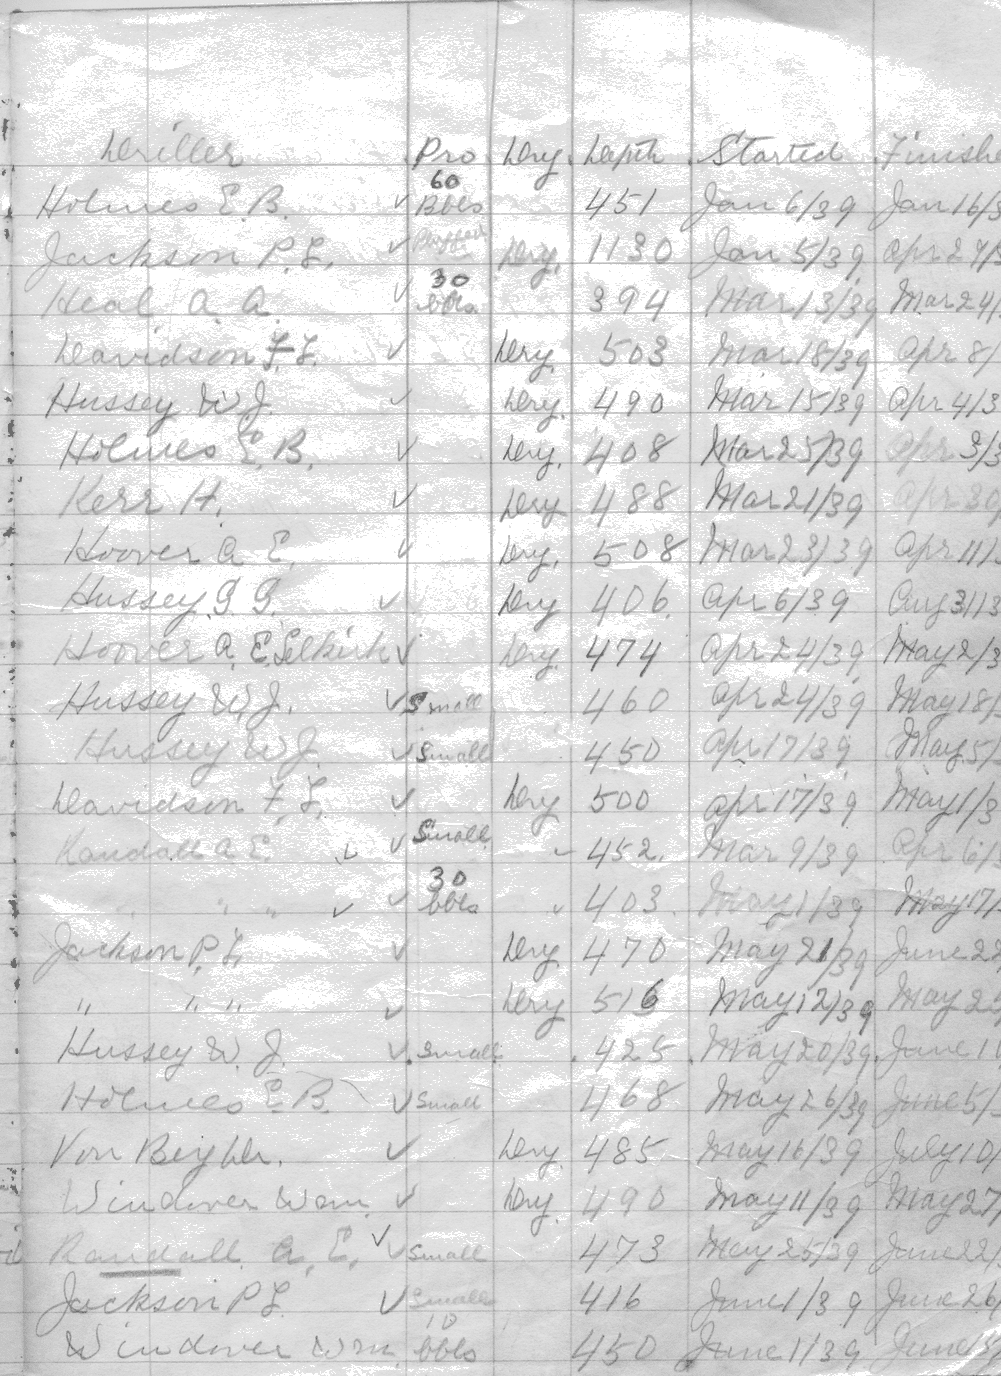 Driller Pro Dry Depth Started Finishe
Holmes E. B. ✓ 60 Bbls 451 Jan 6/39 Jan 16/3
Jackson P. L. ✓ Dry. 1130 Jan 5/39 Apr 27/3
Heal A. A. ✓ 30 bbls. 394 Mar 13/39 Mar 24/
Davidson F. L. ✓ Dry. 503 Mar 18/39 Apr 8/
Hussey W J. ✓ Dry. 490 Mar 15/39 Apr 4/3
Holmes E. B. ✓ Dry. 408 Mar 25/39 Apr 3/3
Kerr H. ✓ Dry 488 Mar 21/39 Apr
Hoover A E. ✓ Dry. 508 Mar 23/39 Apr 11/
Hussey G G. ✓ Dry 406. Apr 6/39 Aug 31/3
Hoover A. E. Selkirk ✓ Dry. 474 Apr 24/39 May 2/3
Hussey W. J. ✓ Small 460 Apr 24/39 May 18/
Hussey W J. ✓ Small 450 Apr 17/39 May 5/
Davidson F. L. ✓ Dry 500 Apr 17/39 May 1/3
Randall A E. ✓ ✓ Small 452. Mar 9/39 Apr 6/
" " " ✓ ✓ 30 bbls 403. May 1/39 May 17/
Jackson P. L. ✓ Dry. 470 May 21/39 June 22
" " " ✓ Dry 516 May 12/39 May 22
Hussey W. J. ✓ Small. 425 May 20/39 June 1
Holmes E. B. ✓ Small 468 May 26/39 June 5/
Von Beigher. ✓ Dry. 485 May 16/39 July 10/
Windover Wm. ✓ Dry. 490 May 11/39 May 27/
Randall A. E. ✓ ✓ Small 473 May 25/39 June 22/
Jackson P L. ✓ Small 416 June 1/39 June 26/
Windover Wm. 10 bbls 450 June 1/39 June